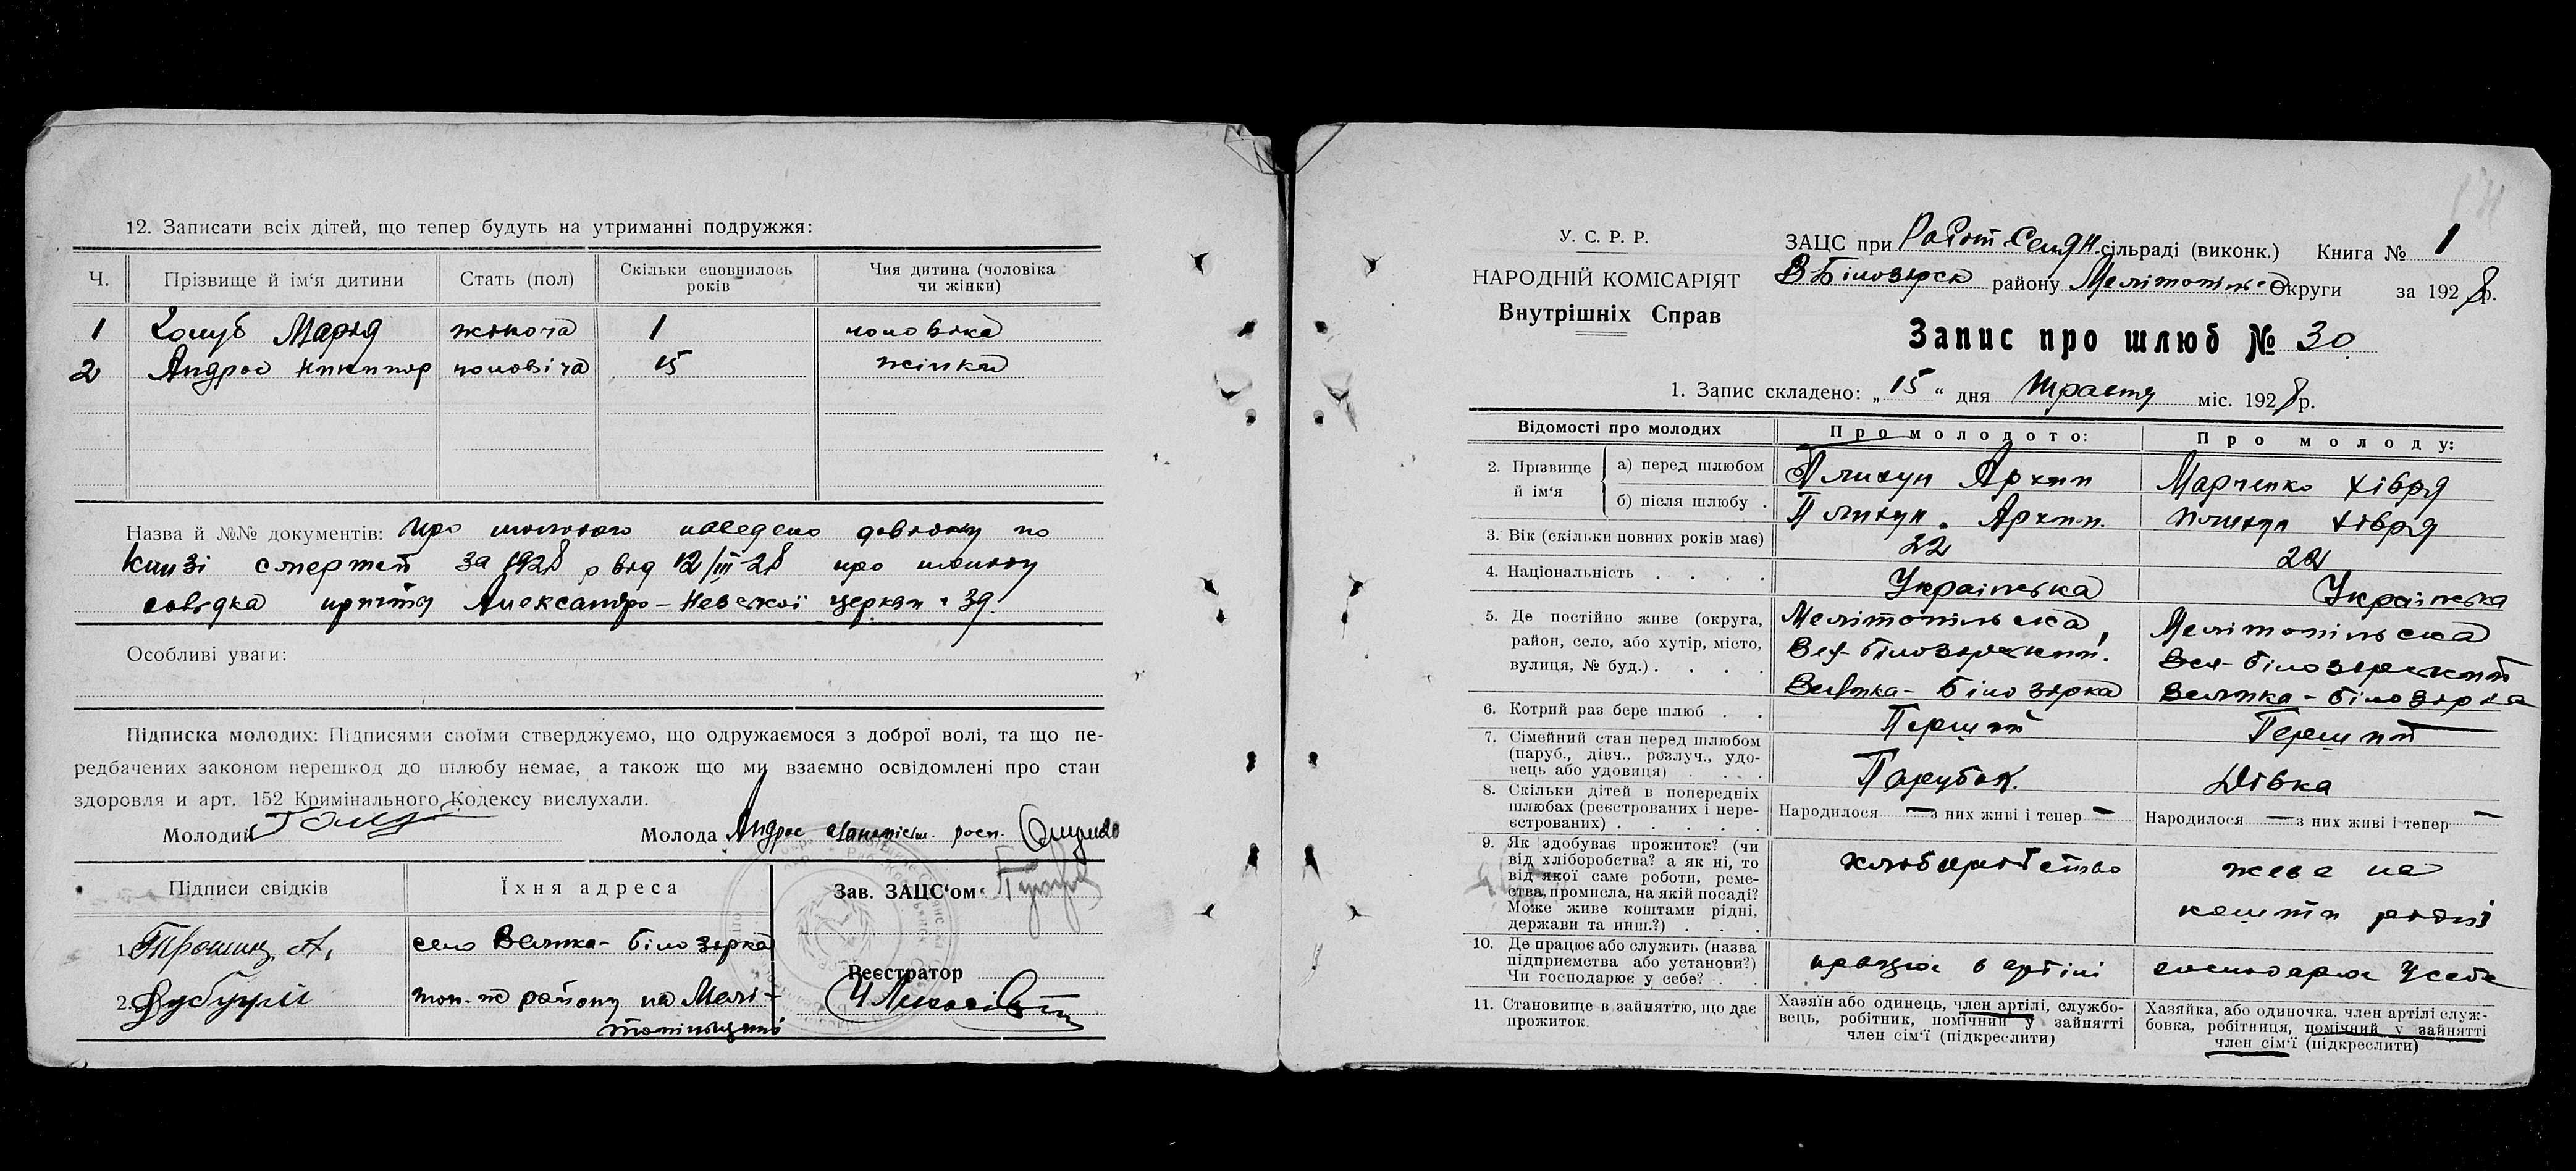 12. Записати всіх дітей, що тепер будуть на утриманні подружжя:
Ч. Прізвище й ім'я дитини Стать (пол) Скільки сповнилось років Чия дитина (чоловіка чи жінки)
1 Голуб Марія жіноча 1 чоловіка
2 Андрос Никипор чоловіча 15 жінки
Назва й №№ документів: про молодого наведено довідку по
книзі смертей за 1928 р від 12/III-28 про молоду
довідка причта Александро-Невської церкви
Особливі уваги:
Підписка молодих: Підписями своїми стверджуємо, що одружаємося з доброї волі, та що пе-
редбачених законом перешкод до шлюбу немає, а також що ми взаємно освідомлені про стан
здоровля и арт. 152 Кримінального Кодексу вислухали.
Молодий Голуб Молода Андрос
Підписи свідків Їхня адреса Зав. ЗАЦС'ом
1. село Велика-Білозірка
Реєстратор
2. району на Мелі-
топільщині
У. С. Р. Р.
НАРОДНІЙ КОМІСАРІЯТ
Внутрішніх Справ
ЗАЦС при сільраді (виконк.) Книга № 1
В-Білозірск району Мелітопільс Округи за 1928 р.
Запис про шлюб № 30
1. Запис складено: „15“ дня Травня міс. 1928 р.
Відомості про молодих Про молодого: Про молоду:
2. Прізвище й ім'я
а) перед шлюбом Плихун Архип Марченко Хівря
б) після шлюбу Плихун Архип Плихун Хівря
3. Вік (скільки повних років має) 22 22
4. Національність Українська Українська
5. Де постійно живе (округа, район, село, або хутір, місто, вулиця, № буд.)
Мелітопільська, Вел-Білозірський. Велика-Білозірка
Мелітопільська Вел-Білозірський Велика-Білозірка
6. Котрий раз бере шлюб Перший Перший
7. Сімейний стан перед шлюбом (паруб., дівч.. розлуч., удовець або удовиця) Парубок. Дівка
8. Скільки дітей в попередніх шлюбах (реєстрованих і нереєстрованих) Народилося — з них живі і тепер — Народилося — з них живі і тепер —
9. Як здобуває прожиток? (чи від хліборобства? а як ні, то від якої саме роботи, ремества, промисла, на якій посаді? Може живе коштами рідні, держави та инш.?) хліборобство живе на кошти рідні
10. Де працює або служить (назва підприємства або установи?) Чи господарює у себе? працює в артілі господарює у себе
11. Становище в зайняттю, що дає прожиток.
Хазяїн або одинець, член артілі, службовець, робітник, помічний у зайнятті член сім'ї (підкреслити)
Хазяйка, або одиночка, член артілі службовка, робітниця, помічний у зайнятті член сім'ї (підкреслити)